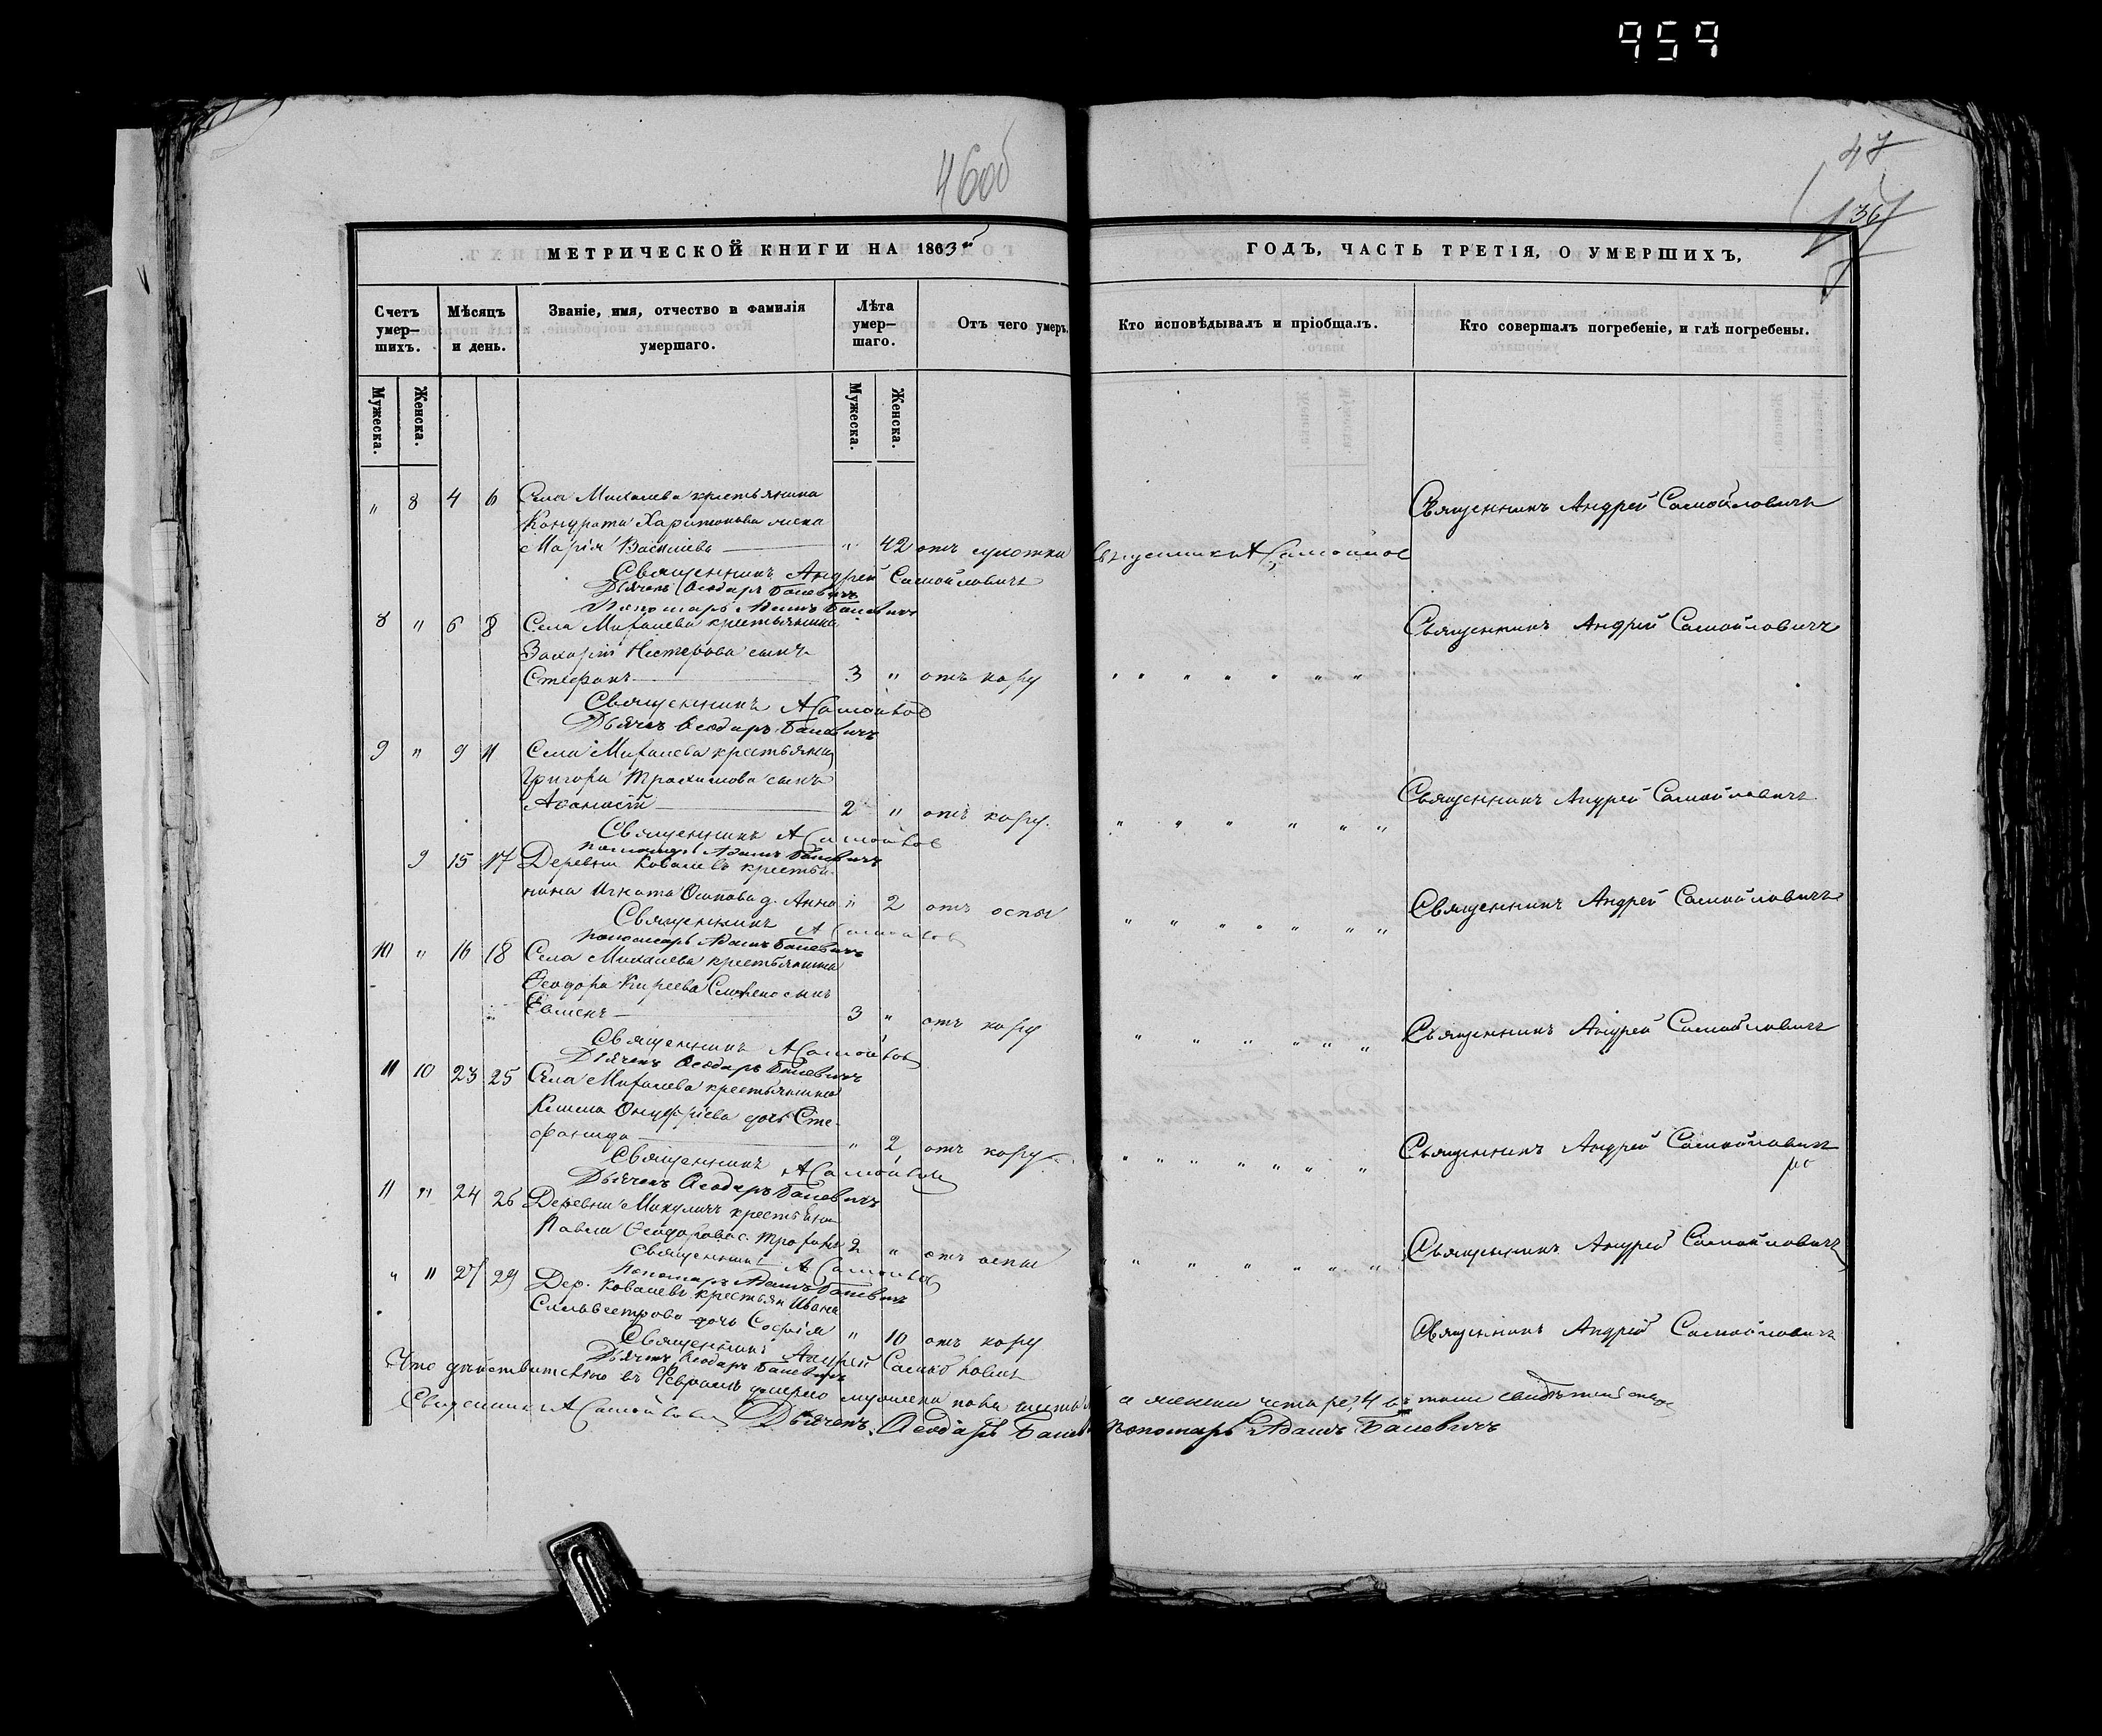 959
46об
47
36
МЕТРИЧЕСКОЙ КНИГИ НА 1863й
ГОДЪ, ЧАСТЬ ТРЕТІЯ, О УМЕРШИХЪ,
Счетъ умер–шихъ.
Мѣсяцъ и день.
Званіе, имя, отчество и фамилія умершаго.
Лѣта умер–шаго.
Отъ чего умеръ.
Кто исповѣдывалъ и пріобщалъ.
Кто совершалъ погребеніе, и гдѣ погребены.
Мужеска. Женска. Мужеска. Женска.
" 8 4 6 Села Михалева крестьянина Священникъ Андрей Самойловичъ
Кондрата Харитонова жена
Марія Василіева " 42 отъ сухотки Священникъ А Самойлов
Священникъ Андрей Самойловичъ
Дьячекъ Ѳеодоръ Баневичъ
Пономарь Адамъ Баневичъ
8 " 6 8 Села Михалева крестьянина Священникъ Андрей Самойловичъ
Захарія Нестерова сынъ
Стефанъ 3 " отъ кору " " " " " "
Священникъ А Самойлов
Дьячекъ Ѳеодоръ Баневичъ
9 " 9 11 Села Михалева крестьянина
Григорія Трохимова сынъ
Аѳанасій 2 " отъ кору. " " " " " " Священникъ Андрей Самойловичъ
Священникъ А Самойлов
Пономарь Адамъ Баневичъ
9 15 17 Деревни Ковалевъ крестья-
нина Игната Осипова д. Анна " 2 отъ оспы " " " " " " " Священникъ Андрей Самойловичъ
Священникъ А Самойлов
Пономарь Адамъ Баневичъ
10 " 16 18 Села Михалева крестьянина
Ѳеодора Киреева сынъ
Евменъ 3 " отъ кору " " " " " " Священникъ Андрей Самойловичъ
Священникъ А Самойлов
Дьячекъ Ѳеодоръ Баневичъ
11 10 23 25 Села Михалева крестьянина
Онуфріева дочь Сте-
фанида " 2 отъ кору " " " " " " " Священникъ Андрей Самойловичъ
Священникъ А Самойлов
Дьячекъ Ѳеодоръ Баневичъ
11 " 24 26 Деревни Микуличъ крестьянина
Павла Ѳеодорова с. Трофимъ 2 " отъ оспы " " " " " " Священникъ Андрей Самойловичъ
Священникъ А Самойлов
Пономарь Адамъ Баневичъ
" 11 27 29 Дер. Ковалевъ крестьян Ивана
Сильвестрова дочь Софія " 10 отъ кору Священникъ Андрей Самойловичъ
Священникъ Андрей Самойлович
Дьячекъ Ѳеодоръ Баневичъ
Что дѣйствительно въ Февралѣ умерло мужеска пола а женска четыре, 4 въ томъ свидѣтельствую
Священникъ А Самойлов Дьячекъ Ѳеодоръ Баневичъ Пономарь Адамъ Баневичъ